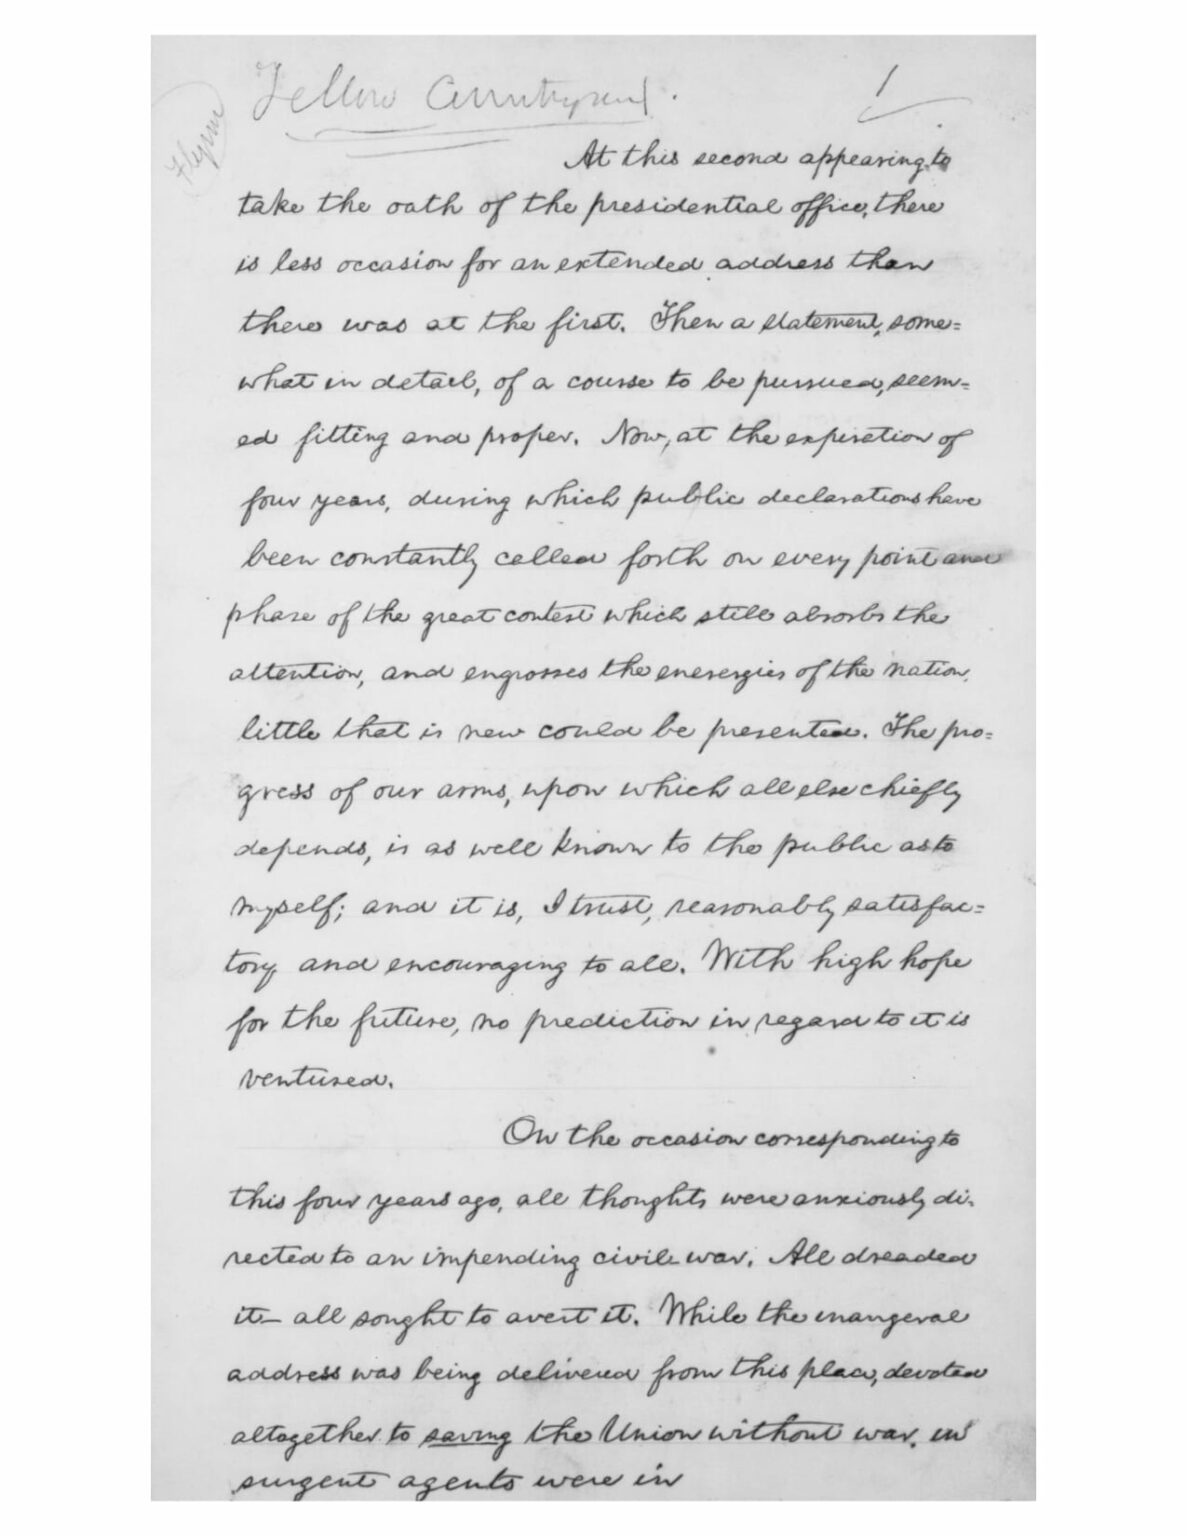 Fellow Countrymen.
1
Flynn
At this second appearing to
take the oath of the presidential office, there
is less occasion for an extended address than
there was at the first. Then a statement, some=
what in detail, of a course to be pursued, seem=
ed fitting and proper. Now, at the expiration of
four years, during which public declarations have
been constantly called forth on every point and
phase of the great contest which still absorbs the
attention, and engrosses the enerergies of the nation,
little that is new could be presented. The pro=
gress of our arms, upon which all else chiefly
depends, is as well known to the public as to
myself; and it is, I trust, reasonably satisfac=
tory and encouraging to all. With high hope
for the future, no prediction in regard to it is
ventured.
On the occasion corresponding to
this four years ago, all thoughts were anxiously di-
rected to an impending civil-war. All dreaded
it— all sought to avert it. While the inaugeral
address was being delivered from this place, devoted
altogether to saving the Union without war, in
surgent agents were in